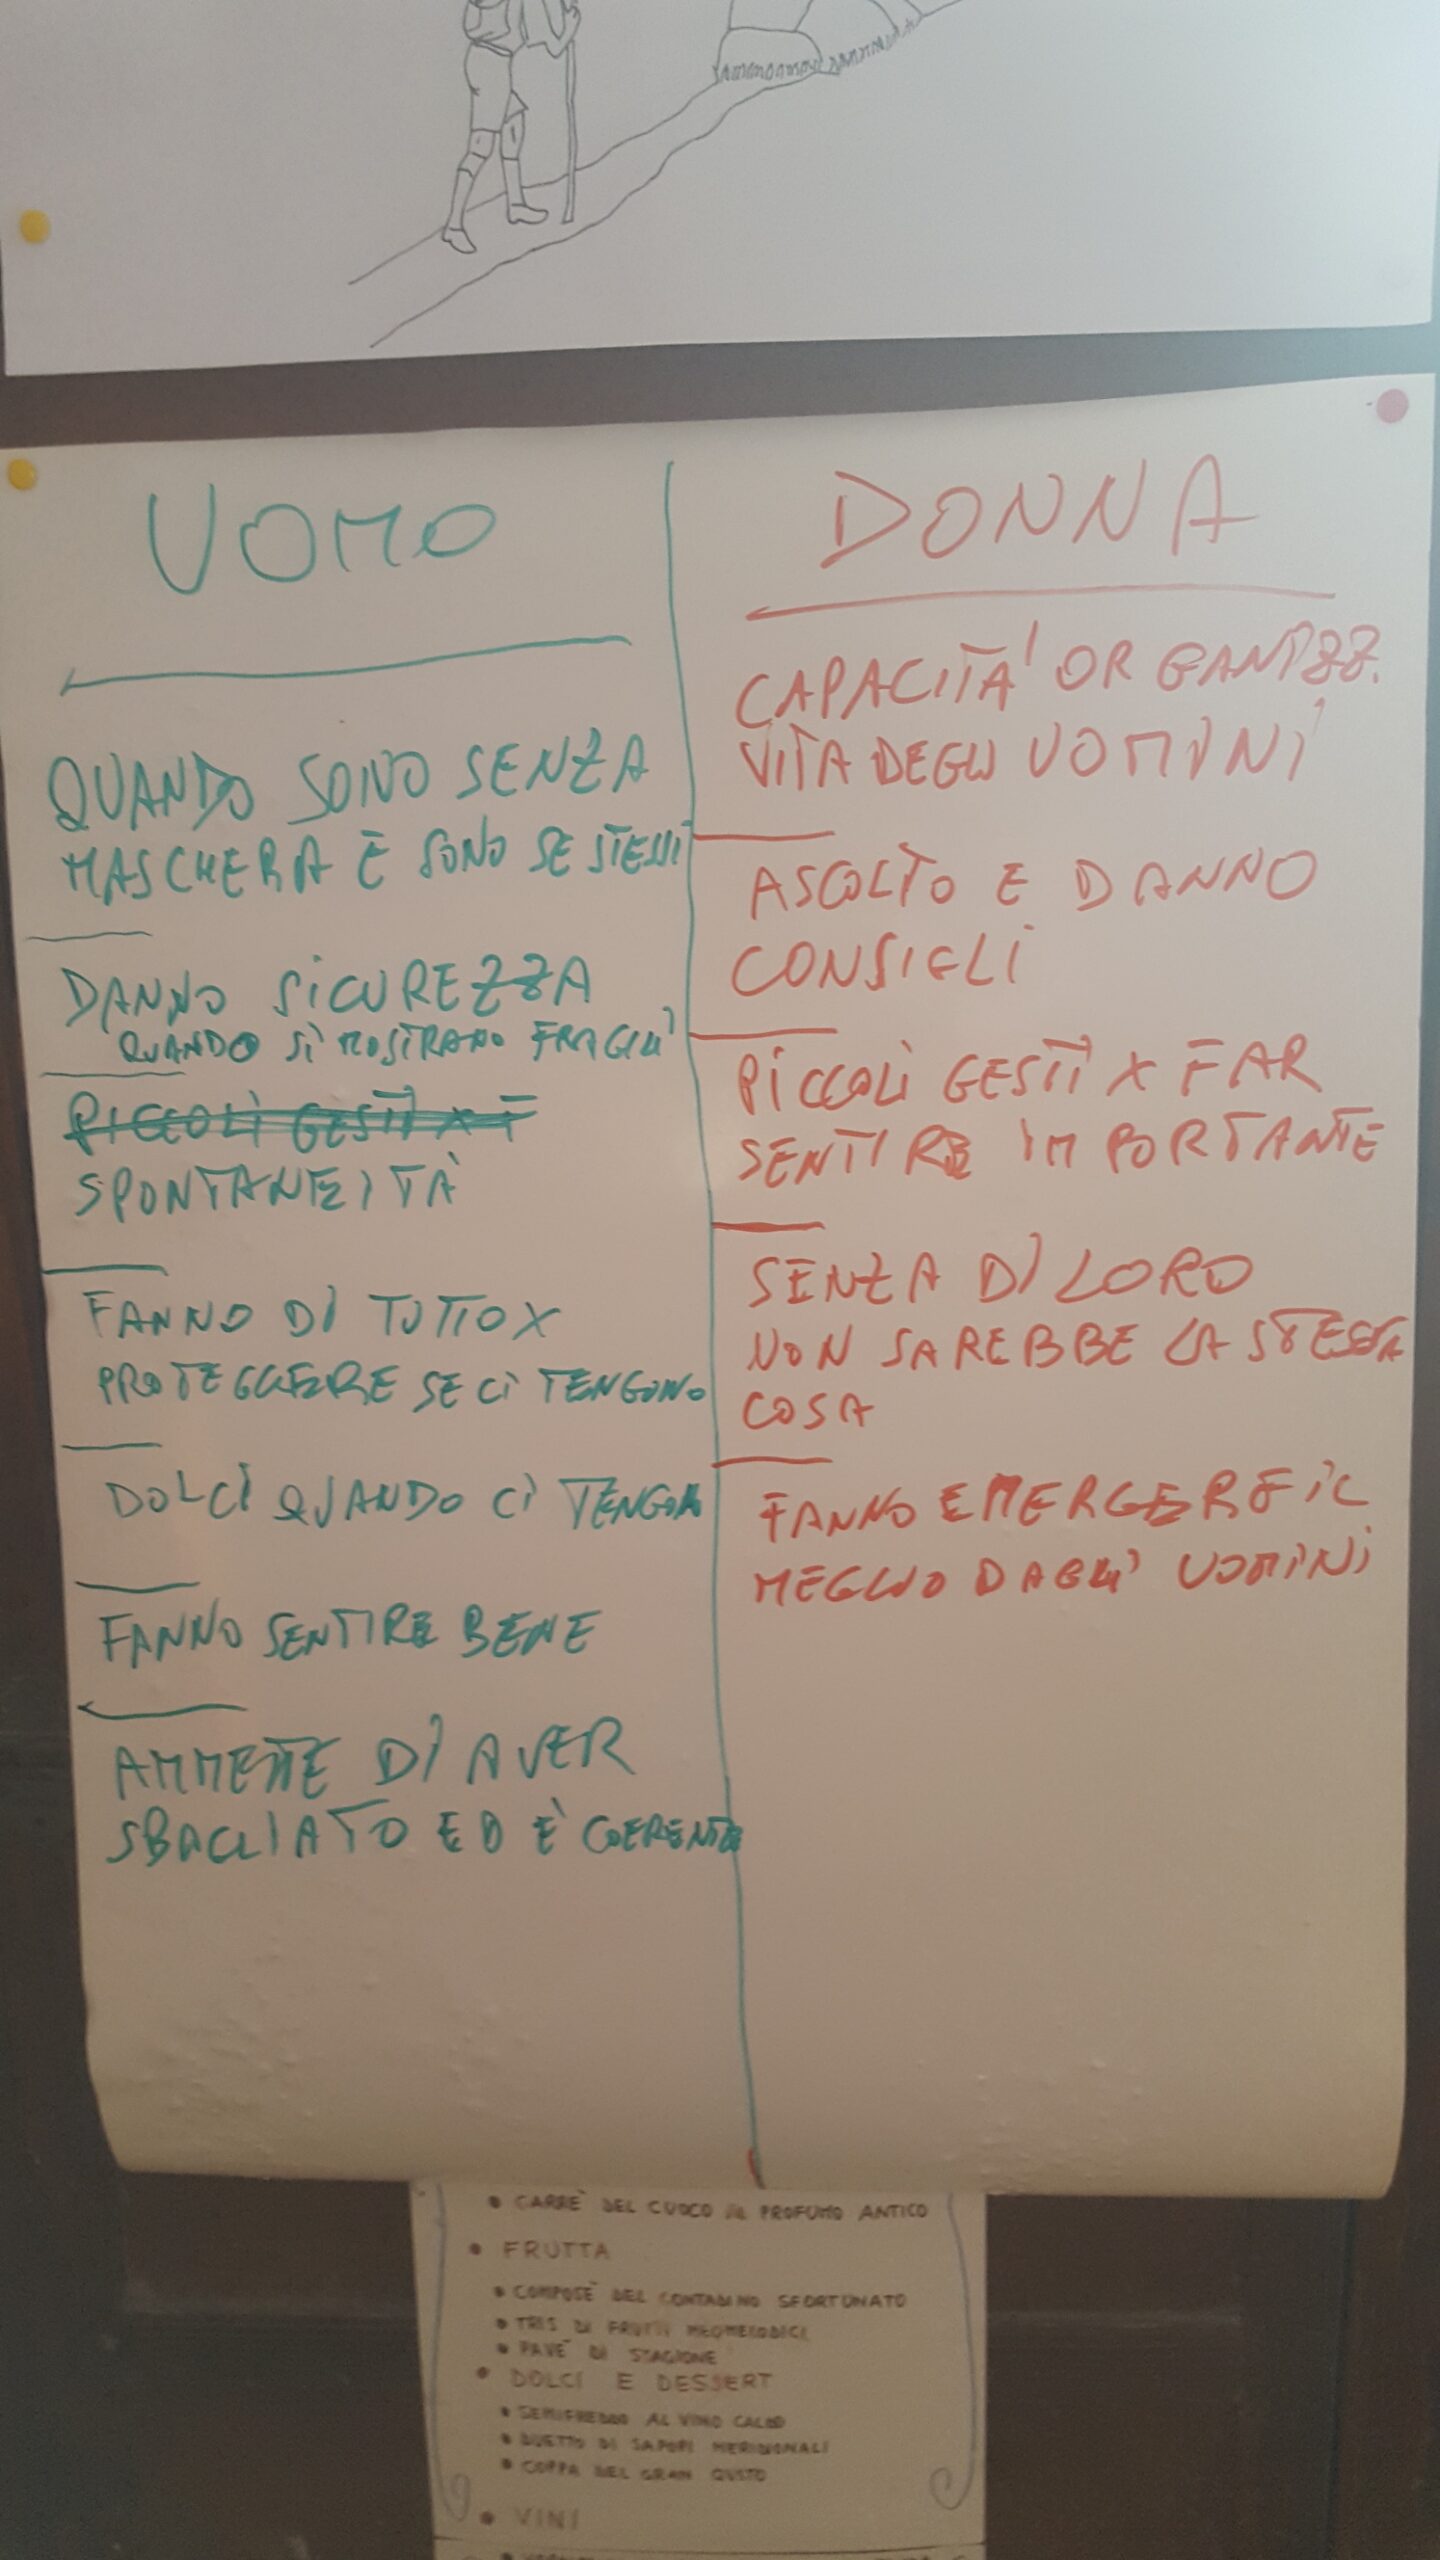 UOMO
QUANDO SONO SENZA
MASCHERA E SONO SE STESSI
DANNO SICUREZZA
QUANDO SI MOSTRANO FRAGILI
PICCOLI GESTI X F
SPONTANEITÀ
FANNO DI TUTTO X
PROTEGGERE SE CI TENGONO
DOLCI QUANDO CI TENGONO
FANNO SENTIRE BENE
AMMETTE DI AVER
SBAGLIATO ED È COERENTE
DONNA
CAPACITA' ORGANIZZ.
VITA DEGLI UOMINI
ASCOLTO E DANNO
CONSIGLI
PICCOLI GESTI X FAR
SENTIRE IMPORTANTE
SENZA DI LORO
NON SAREBBE LA STESSA
COSA
FANNO EMERGERE IL
MEGLIO DAGLI UOMINI
• CARRE' DEL CUOCO AL PROFUMO ANTICO
• FRUTTA
• COMPOSE' DEL CONTADINO SFORTUNATO
• TRIS DI FRUTTI NEOMELODICI
• PAVE' DI STAGIONE
• DOLCI E DESSERT
• SEMIFREDDO AL VINO CALDO
• DUETTO DI SAPORI MERIDIONALI
• COPPA DEL GRAN GUSTO
• VINI